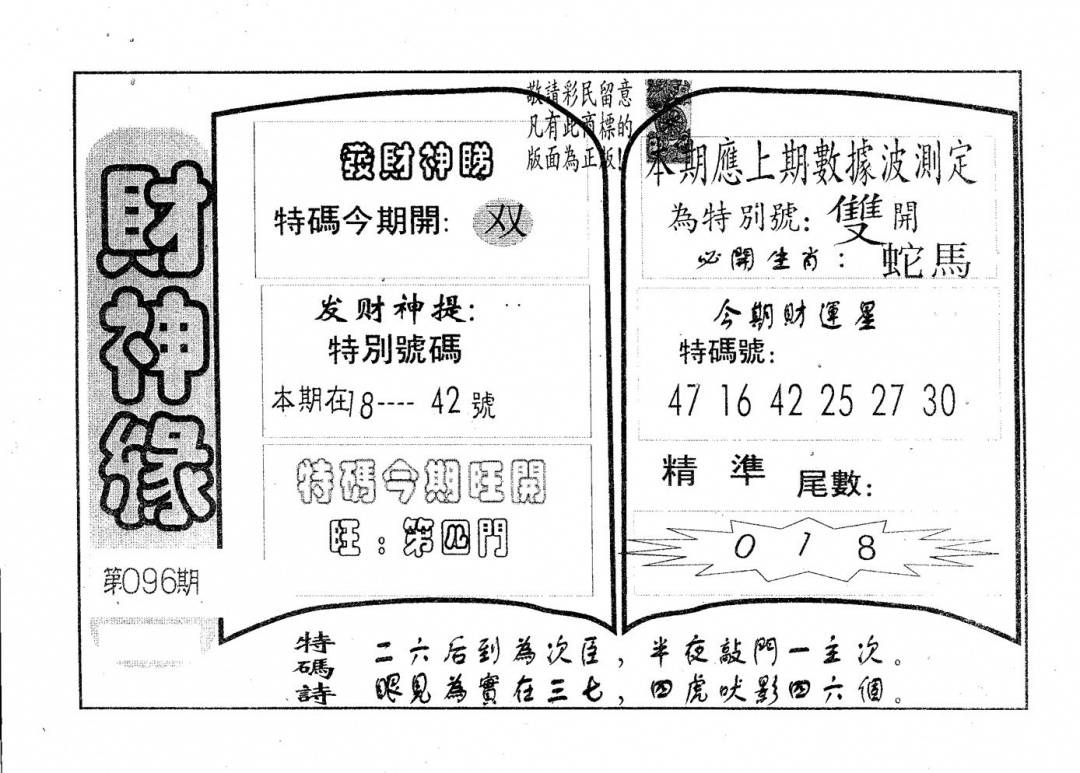 財神緣
第096期
敬請彩民留意
凡有此商標的
版面為正版!
發財神睇
特碼今期開: 双
发财神提:
特別號碼
本期在18---- 42號
特碼今期旺開
旺:第四門
本期應上期數據波測定
為特別號:雙開
必開生肖:蛇馬
今期財運星
特碼號:
47 16 42 25 27 30
精準 尾數:
0 1 8
特碼詩
二六后到為次臣,半夜敲門一主次。
眼見為實在三七,四虎吠影四六個。